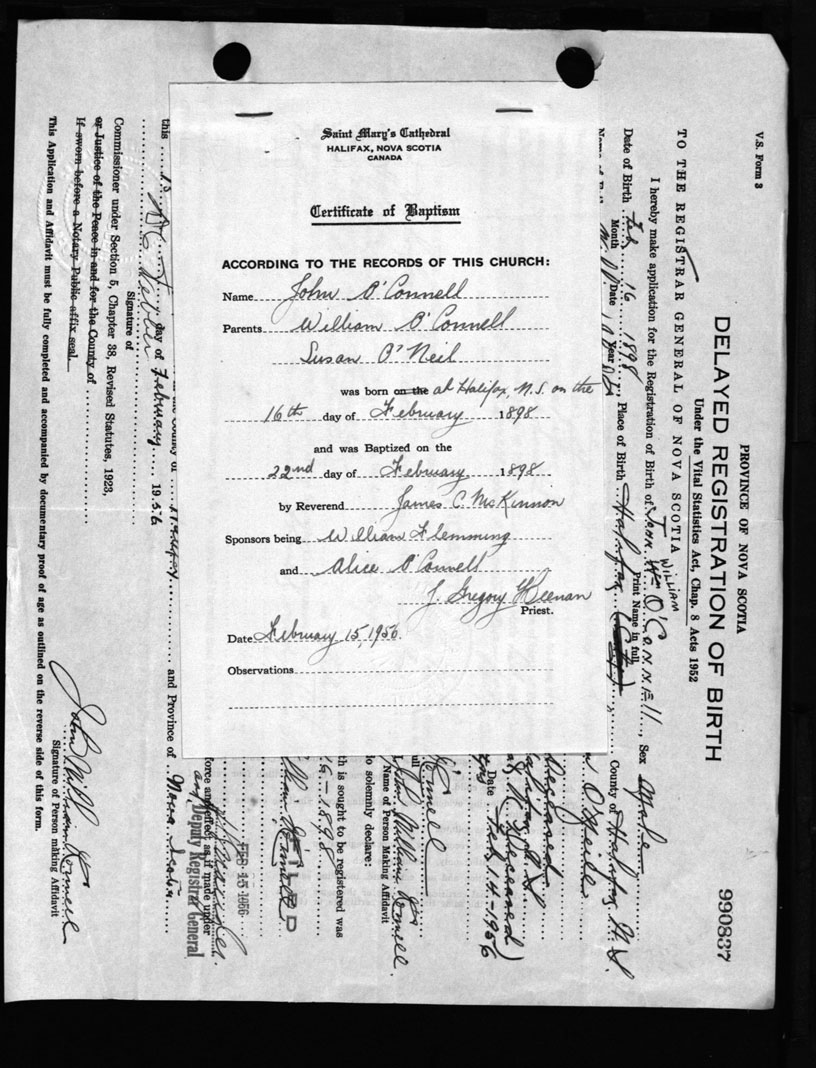 Saint Mary's Cathedral
HALIFAX, NOVA SCOTIA
CANADA
Certificate of Baptism
ACCORDING TO THE RECORDS OF THIS CHURCH:
Name John O'Connell
Parents William O'Connell
Susan O'Neil
was born on the at Halifax, N.S. on the
16th day of February 1898
and was Baptized on the
22nd day of February 1898
by Reverend James C. McKinnon
Sponsors being William Flemming
and Alice O'Connell
J. Gregory Keenan
Priest.
Date February 15, 1956.
Observations
V.S. Form 3
PROVINCE OF NOVA SCOTIA
DELAYED REGISTRATION OF BIRTH
Under the Vital Statistics Act, Chap. 8 Acts 1952
990837
TO THE REGISTRAR GENERAL OF NOVA SCOTIA
WILLIAM
I hereby make application for the Registration of Birth of John Wm O'Connell, Sex Male
Print Name in full
Date of Birth Feb 16 1898, Place of Birth Halifax (City), County of Halifax N.S.
Month Date Year
O'Neill
Deceased
Halifax N.S.
Deceased)
Date Feb. 14-1956
O'Connell
John William O'Connell
Name of Person Making Affidavit
do solemnly declare:
th is sought to be registered was
16-1898
FILED
FEB 15 1956
orce and effect as if made under
Deputy Registrar General
in the County of Halifax and Province of Nova Scotia
this 15 day of February 1956
Signature of
Commissioner under Section 5, Chapter 38, Revised Statutes, 1923,
or Justice of the Peace in and for the County of
If sworn before a Notary Public affix seal.
John William O'Connell
Signature of Person making Affidavit
This Application and Affidavit must be fully completed and accompanied by documentary proof of age as outlined on the reverse side of this form.